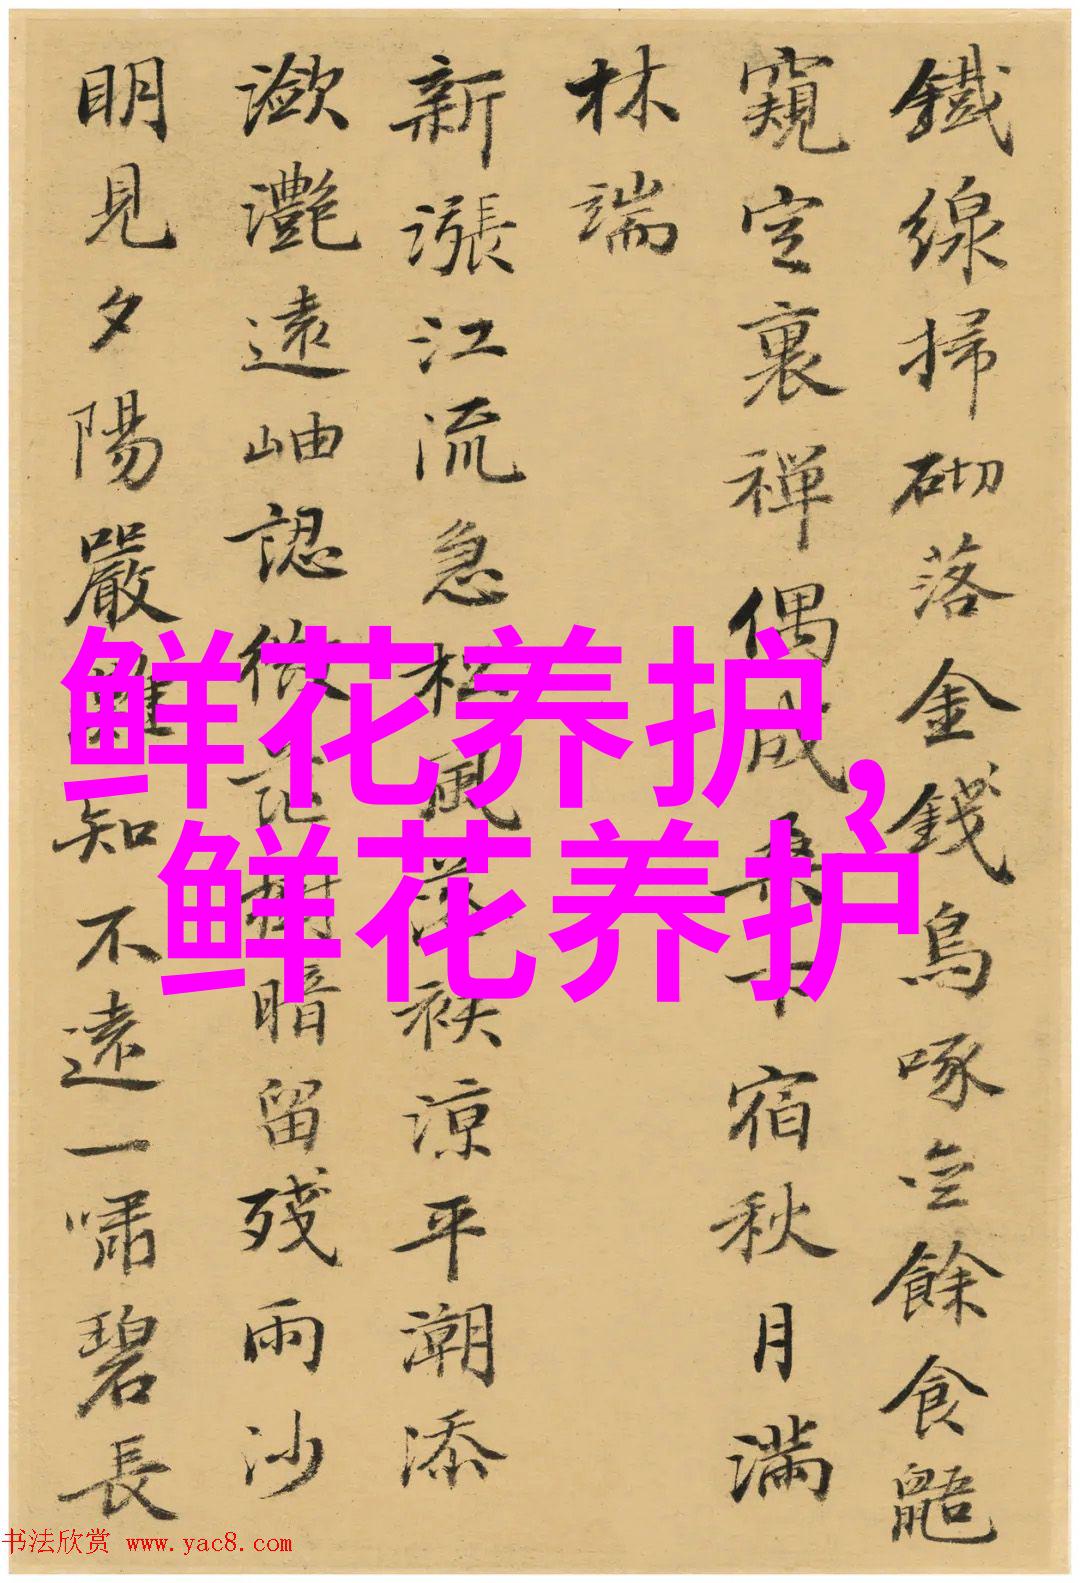 鐵線掃砌落金錢鳥啄空餘食鼯
窺空裏禪偶成桑下宿秋月滿
林端
新漲江流急松風袂涼平潮添
瀲灧遠岫認微茫樹暗留殘雨沙
明見夕陽嚴難知不遠一嘯碧長
鲜花养护，
鲜花养护
书法欣赏 www.yac8.com